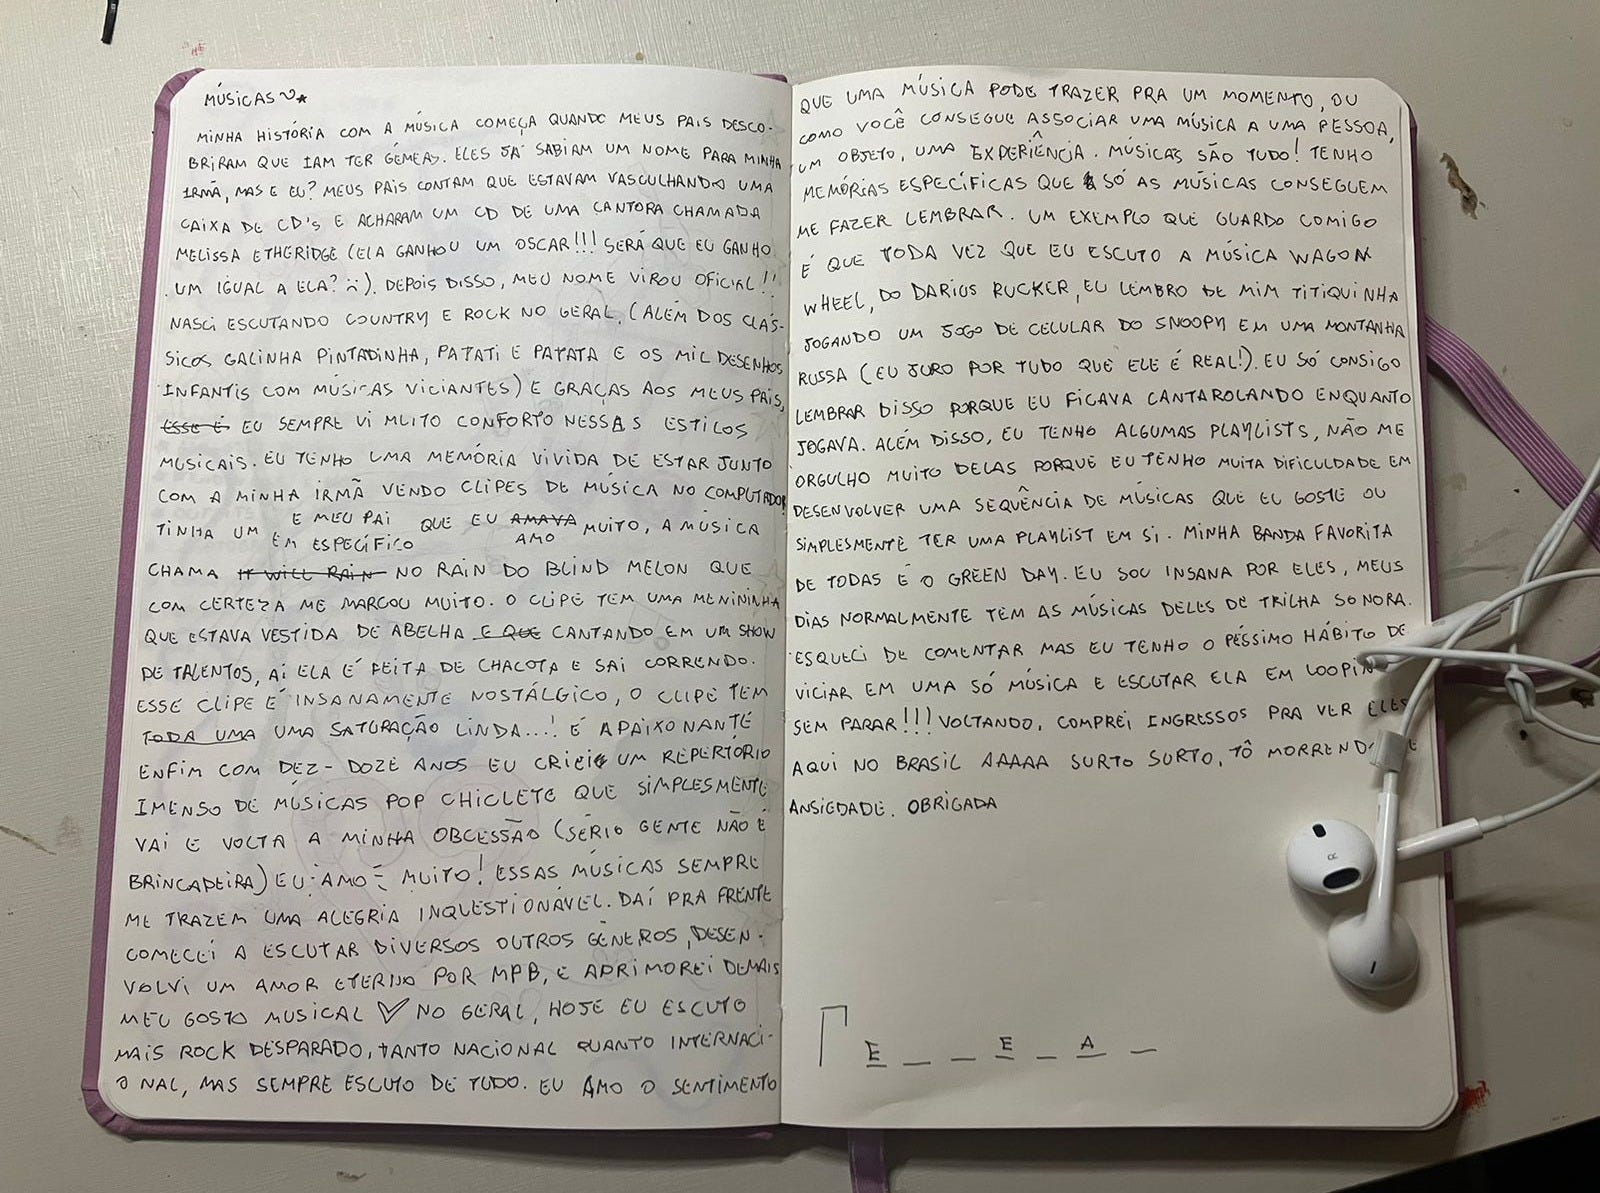 MÚSICAS
MINHA HISTÓRIA COM A MÚSICA COMEÇA QUANDO MEUS PAIS DESCO-
BRIRAM QUE IAM TER GÊMEAS. ELES JÁ SABIAM UM NOME PARA MINHA
IRMÃ, MAS E EU? MEUS PAIS CONTAM QUE ESTAVAM VASCULHANDO UMA
CAIXA DE CD'S E ACHARAM UM CD DE UMA CANTORA CHAMADA
MELISSA ETHERIDGE (ELA GANHOU UM OSCAR!!! SERÁ QUE EU GANHO
UM IGUAL A ELA? :)). DEPOIS DISSO, MEU NOME VIROU OFICIAL!!
NASCI ESCUTANDO COUNTRY E ROCK NO GERAL, (ALÉM DOS CLÁS-
SICOS GALINHA PINTADINHA, PATATI E PATATA E OS MIL DESENHOS
INFANTIS COM MÚSICAS VICIANTES) E GRAÇAS AOS MEUS PAIS,
ESSE É EU SEMPRE VI MUITO CONFORTO NESSAS ESTILOS
MUSICAIS. EU TENHO UMA MEMÓRIA VIVIDA DE ESTAR JUNTO
COM A MINHA IRMÃ VENDO CLIPES DE MÚSICA NO COMPUTADOR
E MEU PAI
TINHA UM EM ESPECÍFICO QUE EU AMAVA AMO MUITO, A MÚSICA
CHAMA IT WILL RAIN NO RAIN DO BLIND MELON QUE
COM CERTEZA ME MARCOU MUITO. O CLIPE TEM UMA MENININHA
QUE ESTAVA VESTIDA DE ABELHA E QUE CANTANDO EM UM SHOW
DE TALENTOS, AÍ ELA É FEITA DE CHACOTA E SAI CORRENDO.
ESSE CLIPE É INSANAMENTE NOSTÁLGICO, O CLIPE TEM
TODA UMA UMA SATURAÇÃO LINDA...! É APAIXONANTE
ENFIM COM DEZ-DOZE ANOS EU CRIEI UM REPERTÓRIO
IMENSO DE MÚSICAS POP CHICLETE QUE SIMPLESMENTE
VAI E VOLTA A MINHA OBCESSÃO (SÉRIO GENTE NÃO É
BRINCADEIRA) EU AMO MUITO! ESSAS MÚSICAS SEMPRE
ME TRAZEM UMA ALEGRIA INQUESTIONÁVEL. DAÍ PRA FRENTE
COMECEI A ESCUTAR DIVERSOS OUTROS GÊNEROS, DESEN-
VOLVI UM AMOR ETERNO POR MPB, E APRIMOREI DEMAIS
MEU GOSTO MUSICAL ♡ NO GERAL, HOJE EU ESCUTO
MAIS ROCK DESPARADO, TANTO NACIONAL QUANTO INTERNACI-
ONAL, MAS SEMPRE ESCUTO DE TUDO. EU AMO O SENTIMENTO
QUE UMA MÚSICA PODE TRAZER PRA UM MOMENTO, OU
COMO VOCÊ CONSEGUE ASSOCIAR UMA MÚSICA A UMA PESSOA,
UM OBJETO, UMA EXPERIÊNCIA. MÚSICAS SÃO TUDO! TENHO
MEMÓRIAS ESPECÍFICAS QUE SÓ AS MÚSICAS CONSEGUEM
ME FAZER LEMBRAR. UM EXEMPLO QUE GUARDO COMIGO
É QUE TODA VEZ QUE EU ESCUTO A MÚSICA WAGON
WHEEL, DO DARIUS RUCKER, EU LEMBRO DE MIM TITIQUINHA
JOGANDO UM JOGO DE CELULAR DO SNOOPY EM UMA MONTANHA
RUSSA (EU JURO POR TUDO QUE ELE É REAL!). EU SÓ CONSIGO
LEMBRAR DISSO PORQUE EU FICAVA CANTAROLANDO ENQUANTO
JOGAVA. ALÉM DISSO, EU TENHO ALGUMAS PLAYLISTS, NÃO ME
ORGULHO MUITO DELAS PORQUE EU TENHO MUITA DIFICULDADE EM
DESENVOLVER UMA SEQUÊNCIA DE MÚSICAS QUE EU GOSTE OU
SIMPLESMENTE TER UMA PLAYLIST EM SI. MINHA BANDA FAVORITA
DE TODAS É O GREEN DAY. EU SOU INSANA POR ELES, MEUS
DIAS NORMALMENTE TEM AS MÚSICAS DELES DE TRILHA SONORA.
ESQUECI DE COMENTAR MAS EU TENHO O PÉSSIMO HÁBITO DE
VICIAR EM UMA SÓ MÚSICA E ESCUTAR ELA EM LOOPIN
SEM PARAR!!! VOLTANDO, COMPREI INGRESSOS PRA VER ELES
AQUI NO BRASIL AAAAA SURTO SURTO, TÔ MORRENDO
ANSIEDADE. OBRIGADA
E _ _ E _ A _